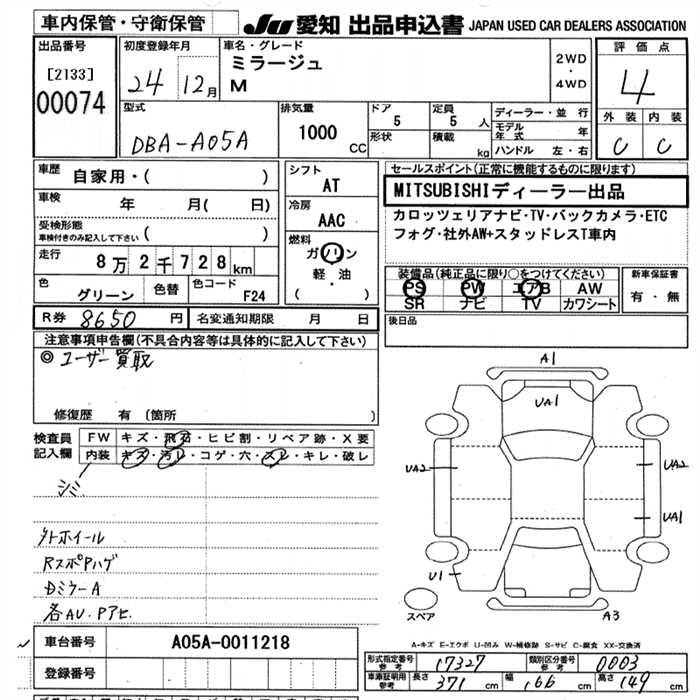 車内保管・守衛保管 JU 愛知 出品申込書 JAPAN USED CAR DEALERS ASSOCIATION
出品番号 初度登録年月 車名・グレード 評価点
[2133] 24 12月 ミラージュ 2WD ・ 4WD 4
00074 M
外装 内装
型式 排気量 ドア 定員 ディーラー・並行
DBA-A05A 1000 CC 5 5 人 モデル年式 年 C C
形状 積載 kg ハンドル 左・右
車歴 自家用・( ) シフト セールスポイント(正常に機能するものに限ります)
AT MITSUBISHIディーラー出品
車検 年 月( 日) 冷房 カロッツェリアナビ・TV・バックカメラ・ETC
受検形態 AAC フォグ・社外AW+スタッドレスT車内
車検付きのみ記入して下さい ( )
走行 8万2千728km 燃料 ガソリン 軽・油 ( )
装備品(純正品に限り○をつけてください) 新車保証書
色 グリーン 色替 色コード F24 PS PW エアB AW 有・無
SR ナビ TV カワシート
R券 8650 円 名変通知期限 月 日 後日品
注意事項申告欄(不具合内容等は具体的に記入して下さい)
◎ユーザー買取
修復歴 有 (箇所 )
検査員記入欄 FW キズ・飛石・ヒビ割・リペア跡・X要
内装 キズ・汚レ・コゲ・穴・スレ・キレ・破レ
シミ
外ホイール
RスポPハゲ
Dミラー A
各AU・Pアセ
A1
UA1
UA2 UA2
UA1
U1
スペア A3
A-キズ E-エクボ U-凹み W-補修跡 S-サビ C-腐食 XX-交換済
車台番号 A05A-0011218
形式指定番号 参考 17327 類別区分番号 参考 0003
登録番号
車庫証明用 参考 長さ 371 cm 幅 166 cm 高さ 149 cm